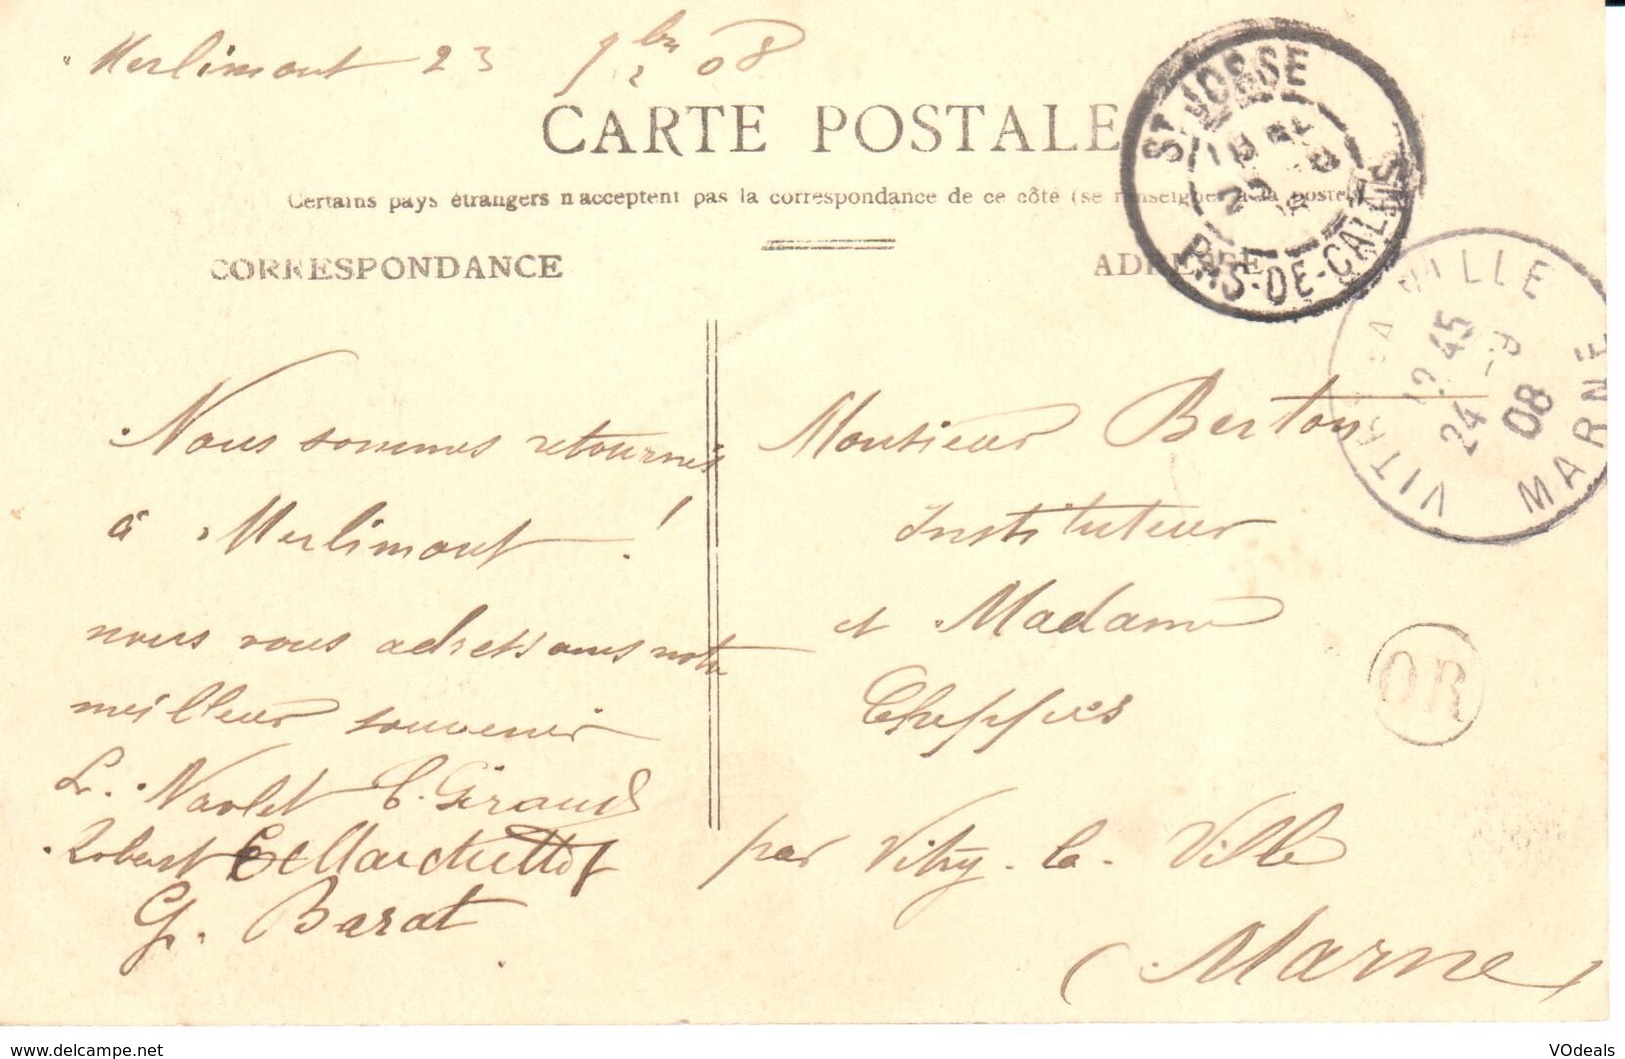 Merlimont 23 7bre 08
CARTE POSTALE
Certains pays étrangers n'acceptent pas la correspondance de ce côté (se renseigner à la poste)
CORRESPONDANCE
ADRESSE
ST JOSSE
PAS-DE-CALAIS
VITRY-LA-VILLE
12 45
24 -9
08
MARNE
Nous sommes retournés
à Merlimont !
nous vous adressons notre
meilleur souvenir
L. Navlet C. Giraud
Robert
G. Barat
Monsieur Berton
Instituteur
et Madame
Cheppes
par Vitry-la-Ville
(Marne)
OR
www.delcampe.net
VOdeals